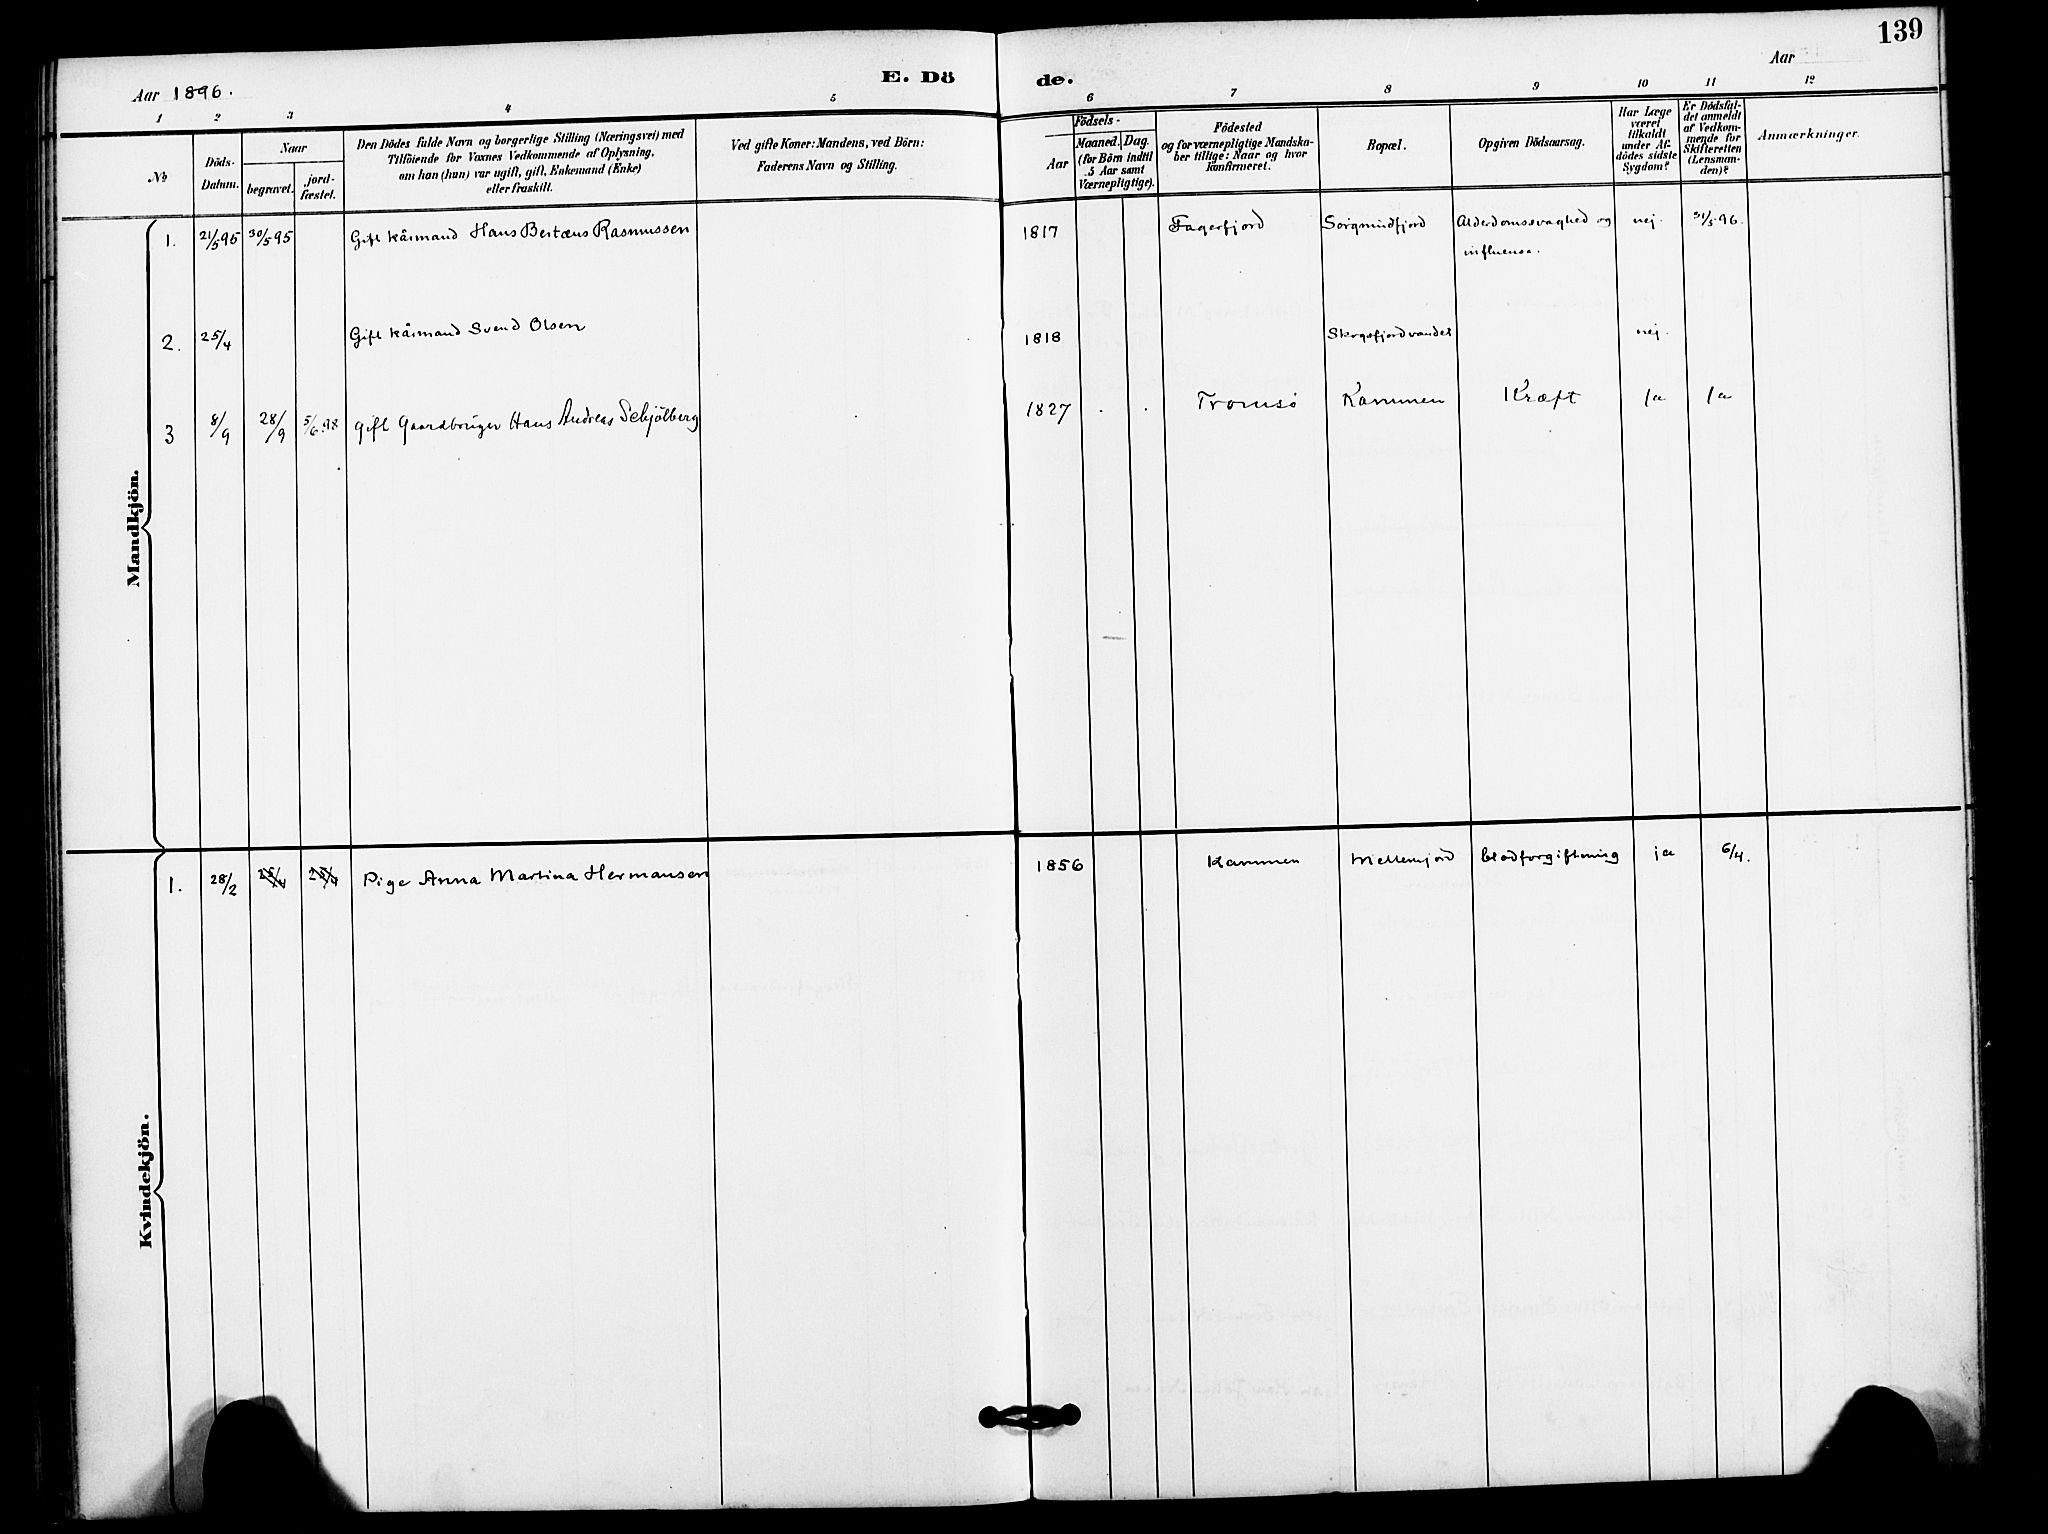 139
Aar 1896.
E. Dö
de.
Aar
1 2 3 4 5 6 7 8 9 10 11 12
No
Döds-
Datum.
Naar
begravet.
jord-
fæstet.
Den Dödes fulde Navn og borgerlige Stilling (Næringsvei) med
Tilföiende for Voxnes Vedkommende af Oplysning,
om han (hun) var ugift, gift, Enkemand (Enke)
eller fraskilt.
Ved gifte Koner: Mandens, ved Börn:
Faderens Navn og Stilling.
Födsels-
Aar
Maaned.
Dag.
(for Börn indtil
5 Aar samt
Værnepligtige).
Födested
og for værnepligtige Mandska-
ber tillige: Naar og hvor
konfirmeret.
Bopæl.
Opgiven Dödsaarsag.
Har Læge
været
tilkaldt
under Af-
dödes sidste
Sygdom?
Er Dödsfal-
det anmeldt
af Vedkom-
mende for
Skifteretten
(Lensman-
den)?
Anmærkninger.
Mandkjön.
1. 21/5 95 30/5 95 Gift kårmand Hans Bertæus Rasmussen 1817 Fagerfjord Sorgmudfjord Alderdomssvaghed og nej. 31/5 96.
influensa.
2. 25/4 Gift kårmand Svend Olsen 1818 Skogsfjordvandet nej.
3 8/9 28/9 5/6.98 Gift Gaardbruger Hans Andreas Schjölberg 1827 Tromsö Kammen Kræft Ja Ja
Kvindekjön.
1. 28/2 25/4 25/4 Pige Anna Martina Hermansen 1856 Kammen Mellemjord blodforgiftning ja 6/4.